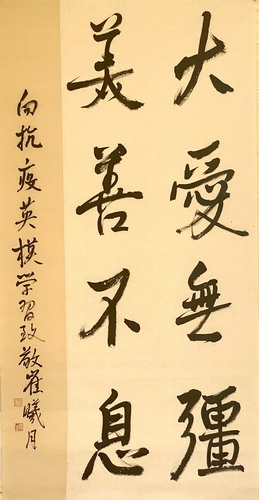 大愛無疆
美善不息
向抗疫英模学習致敬崔曦月